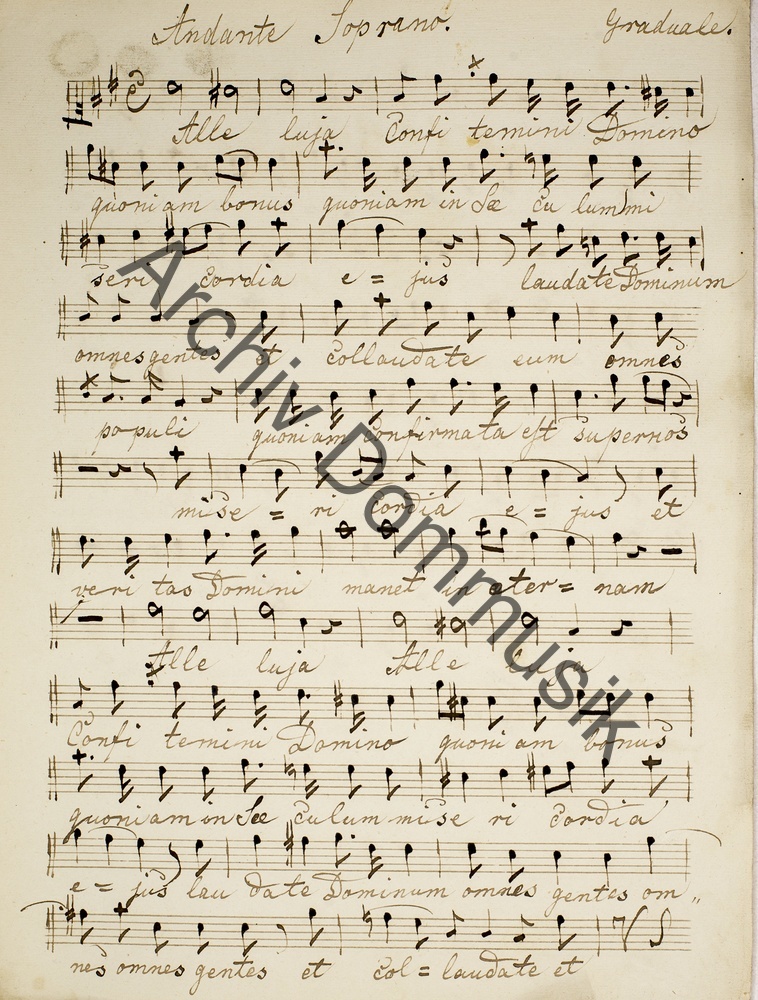 Andante Soprano. Graduale.
Alle luja Confi temini Domino
quoni am bonus quoniam in Sæ cu lum mi
seri cordia e = jus laudate Dominum
omnes gentes et collaudate eum omnes
populi quoniam confirmata est super nos
mise = ri cordia e = jus et
veri tas Domini manet in eter = nam
Alle luja Alle luja
Confi temini Domino quoni am bonus
quoniam in Sæ culum mise ri cordia
e = jus lau date Dominum omnes gentes om„
nes omnes gentes et col = laudate et
Archiv Dommusik